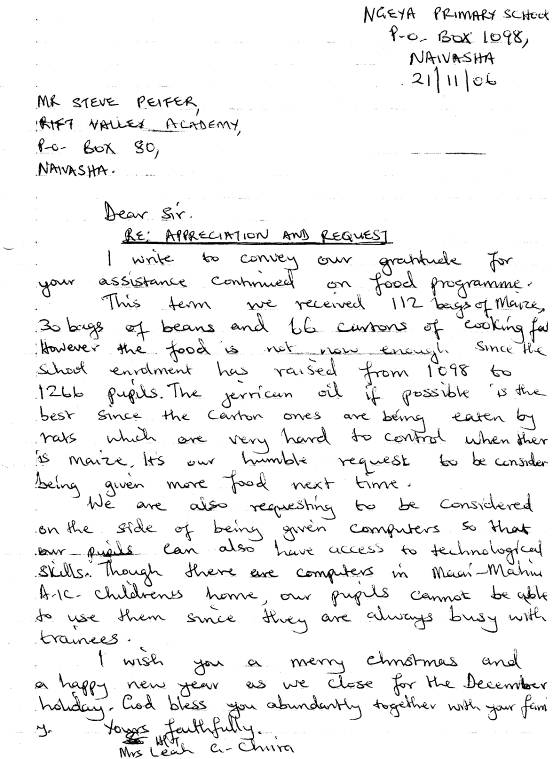 NGEYA PRIMARY SCHOOL
P-O- BOX 1098,
NAIVASHA
21/11/06
MR STEVE PEIFER,
RIFT VALLEY ACADEMY,
P-O- BOX 80,
NAIVASHA.
Dear Sir.
RE: APPRECIATION AND REQUEST
I write to convey our gratitude for
your assistance continued on food programme.
This term we received 112 bags of Maize,
30 bags of beans and 66 cartons of cooking fat
However the food is not now enough since the
School enrolment has raised from 1098 to
1266 pupils. The jerrican oil if possible is the
best since the carton ones are being eaten by
rats which are very hard to control when ther
is maize. Its our humble request to be consider
being given more food next time.
We are also requesting to be considered
on the side of being given computers so that
our pupils can also have access to technological
skills. Though there are computers in Maai-Mahiu
A-I-C- childrens home, our pupils cannot be able
to use them since they are always busy with
trainees.
I wish you a merry christmas and
a happy new year as we close for the December
holiday. God bless you abundantly together with your fami
y. Yours faithfully.
Mrs Leah G-Chira